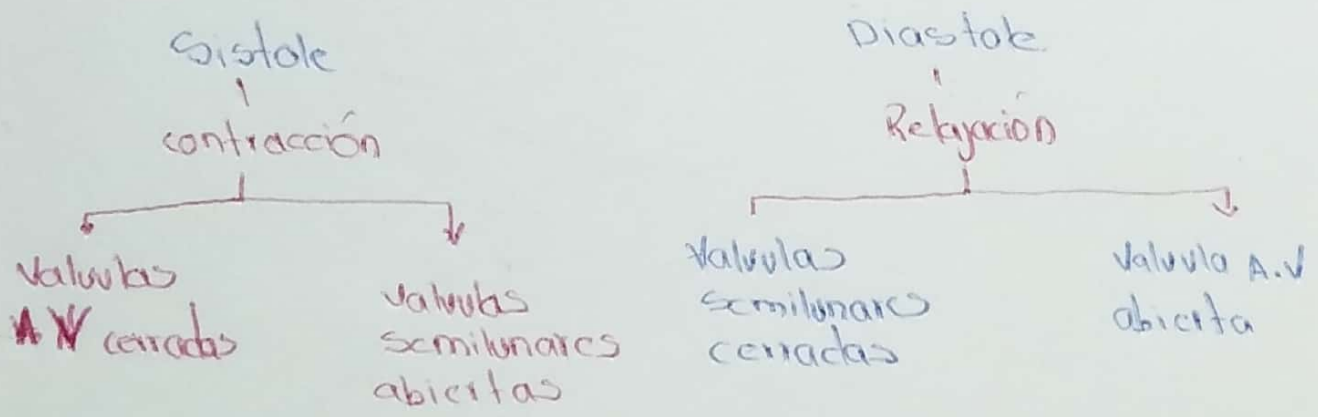 Sistole
contracción
Valvulas
A V cerradas
valvulas
semilunares
abiertas
Diastole
Relajación
Valvulas
semilunares
cerradas
Valvula A.V
abierta